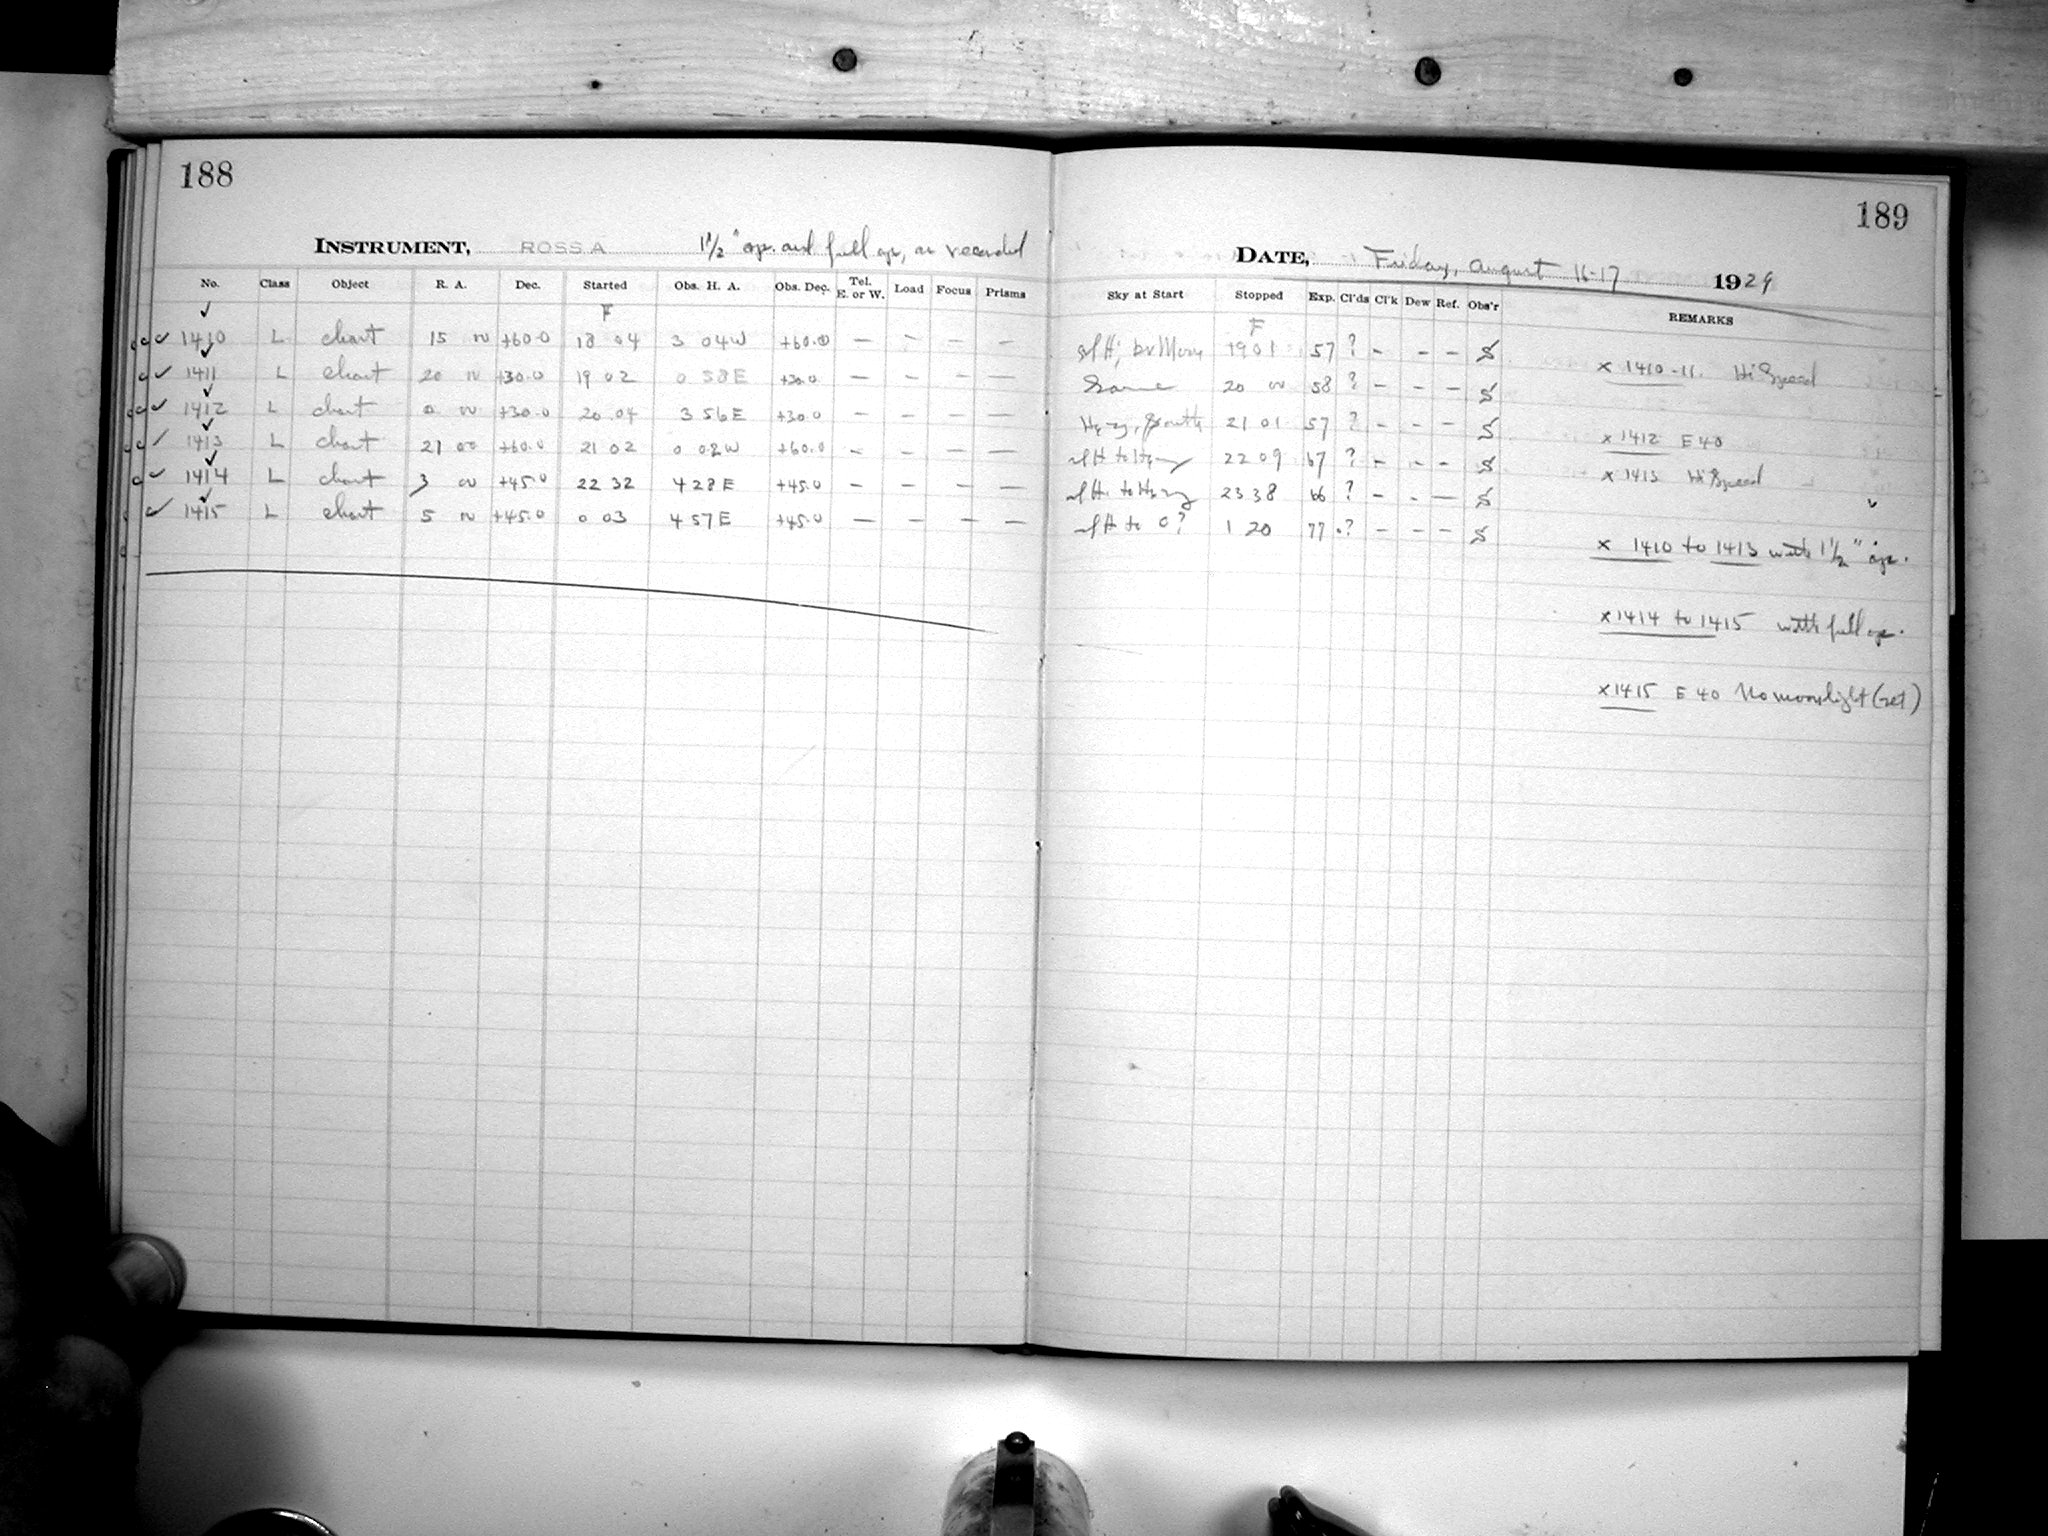 188
INSTRUMENT, ROSS A 1 1/2" ap. and full ap, as recorded
No. Class Object R. A. Dec. Started Obs. H. A. Obs. Dec. Tel. E. or W. Load Focus Prisms
F
1410 L chart 15 00 +60.0 18 04 3 04W +60.0 — — — —
1411 L chart 20 00 +30.0 19 02 0 58E +30.0 — — — —
1412 L chart 0 00 +30.0 20 04 3 56E +30.0 — — — —
1413 L chart 21 00 +60.0 21 02 0 02W +60.0 — — — —
1414 L chart 3 00 +45.0 22 32 4 28E +45.0 — — — —
1415 L chart 5 00 +45.0 0 03 4 57E +45.0 — — — —
189
DATE, Friday, August 16-17 1929
Sky at Start Stopped Exp. Cl'ds Cl'k Dew Ref. Obs'r REMARKS
F
Moon 19 01 57 ? - - - S
Same 20 00 58 ? - - - S
21 01 57 ? - - - S
22 09 67 ? - - - S
23 38 66 ? - - - S
1 20 77 ? - - - S
x 1410-11. Hi Speed
x 1412 E 40
x 1413 Hi Speed
x 1410 to 1413 with 1 1/2" ap.
x 1414 to 1415 with full ap.
x 1415 E 40 No moonlight (set)